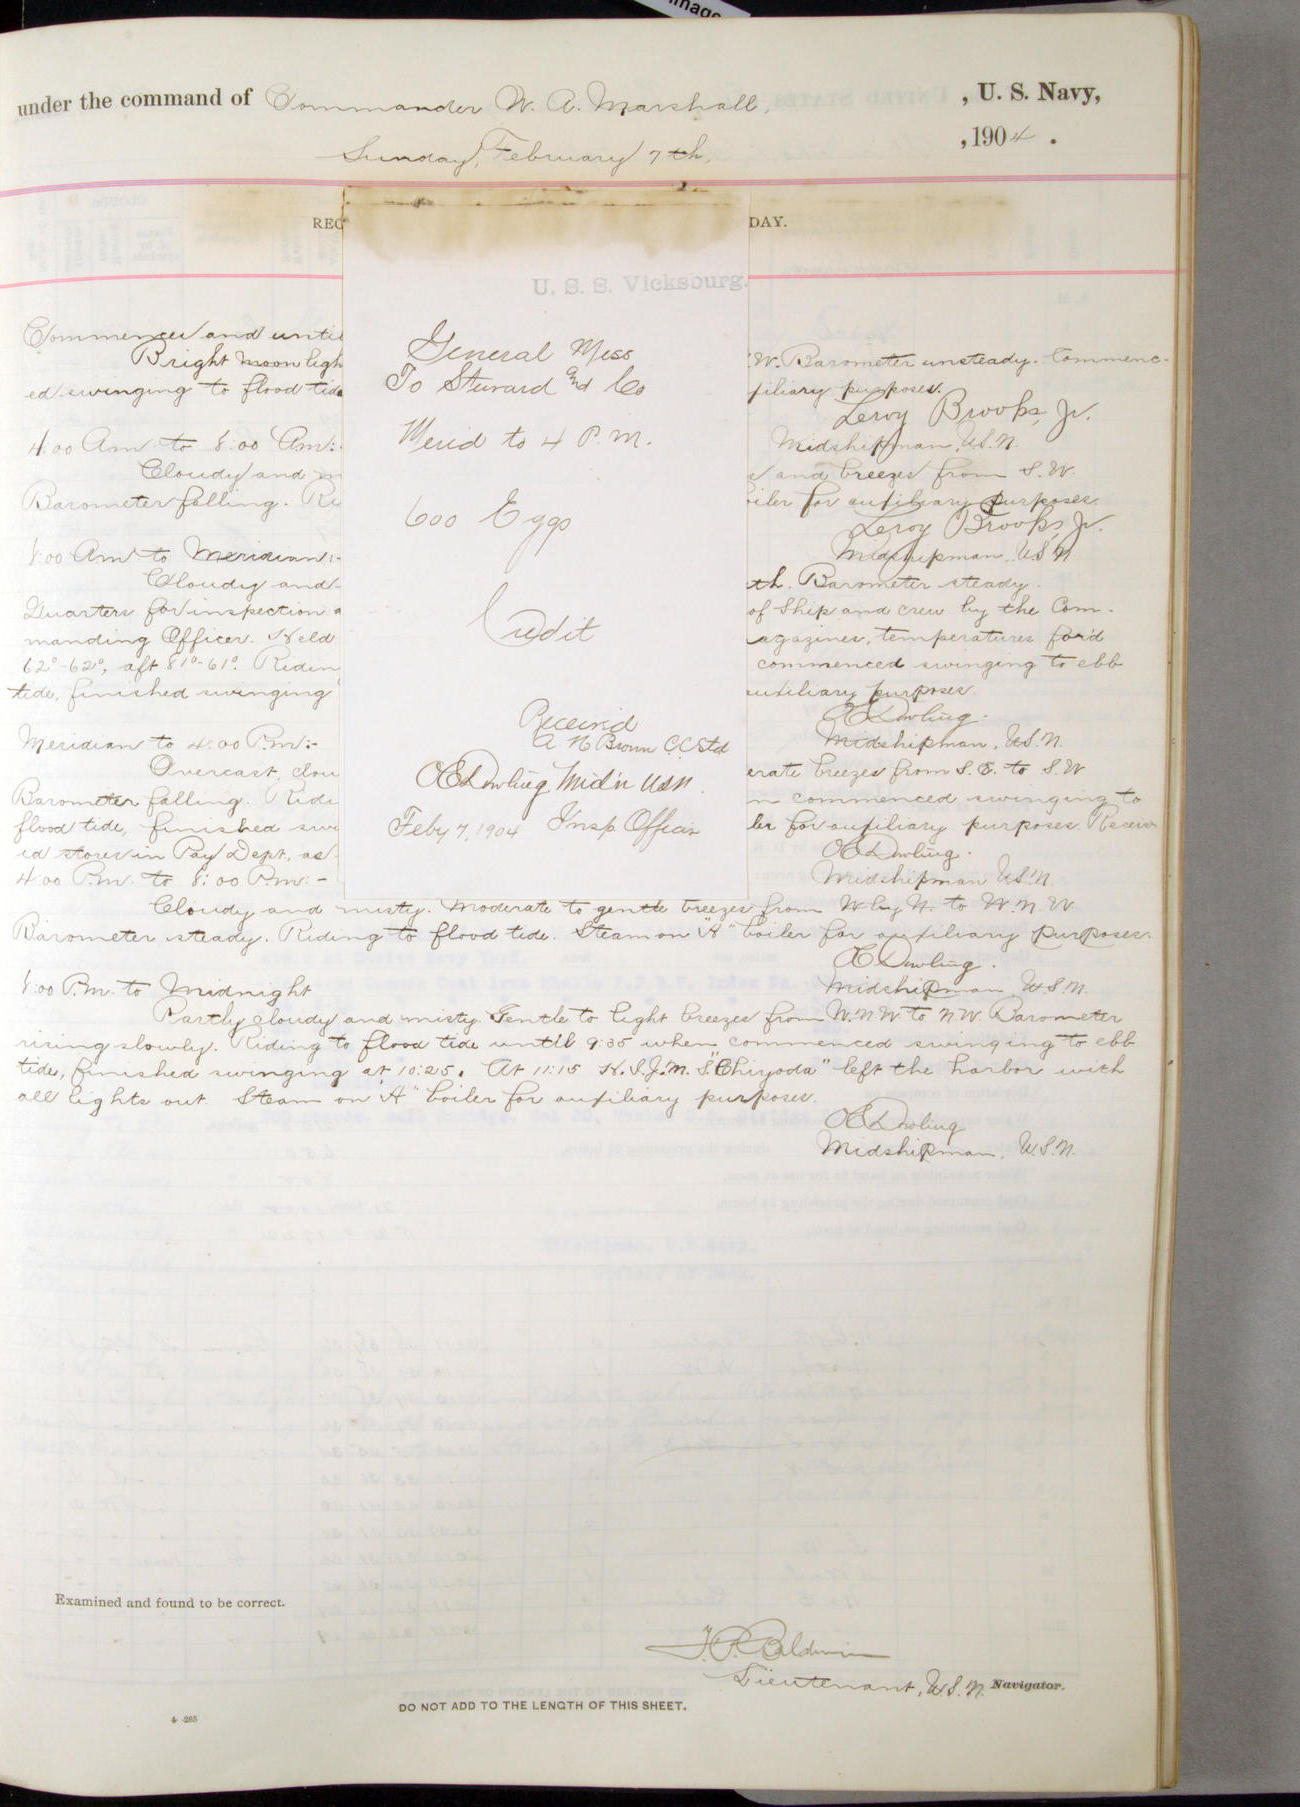 under the command of Commander W. A. Marshall, , U. S. Navy,
Sunday, February 7th, , 1904 .
REC DAY.
U. S. S. Vicksburg.
General Mess
To Steward and Co
Merid to 4 P. M.
600 Eggs
Credit
Received
A. N. Brown C.C. Std
O E Dowling Mid'n USN.
Feby 7, 1904 Insp. Officer
Commences and until
Bright moon ligh W. Barometer unsteady. Commenc-
ed swinging to flood tide xiliary purposes.
Leroy Brooks, Jr.
4:00 Am to 8:00 Am:- Midshipman, U.S.N.
Cloudy and m and breezes from S. W.
Barometer falling. Ri oiler for auxiliary purposes.
Leroy Brooks, Jr.
8:00 Am to Meridian:- Midshipman. U.S.N
Cloudy and th. Barometer steady.
Quarters for inspection of Ship and crew by the Com-
manding Officer. Held agazines, temperatures for'd
62°-62°, aft 81°-61°. Ridin commenced swinging to ebb
tide, finished swinging auxiliary purposes.
O E Dowling.
Meridian to 4:00 P.m:- Midshipman, U.S.N.
Overcast, clou erate breezes from S. E. to S.W
Barometer falling. Ridi n commenced swinging to
flood tide, finished swi ler for auxiliary purposes. Receiv-
ed stores in Pay Dept. as O E Dowling.
4:00 P.m. to 8:00 P.m:- Midshipman U.S.N.
Cloudy and misty. Moderate to gentle breezes from W by N. to W.N.W
Barometer steady. Riding to flood tide. Steam on "A" boiler for auxiliary purposes.
O E Dowling.
8:00 P.m. to Midnight Midshipman U.S.N.
Partly cloudy and misty. Gentle to light breezes from W.N.W to N W. Barometer
rising slowly. Riding to flood tide until 9:35 when commenced swinging to ebb
tide, finished swinging at 10:25. At 11:15 H.I.J.M.S. "Chiyoda" left the harbor with
all lights out. Steam on "A" boiler for auxiliary purposes.
O E Dowling
Midshipman, U.S.N.
Examined and found to be correct.
Baldwin
Lieutenant, U.S.N. Navigator.
DO NOT ADD TO THE LENGTH OF THIS SHEET.